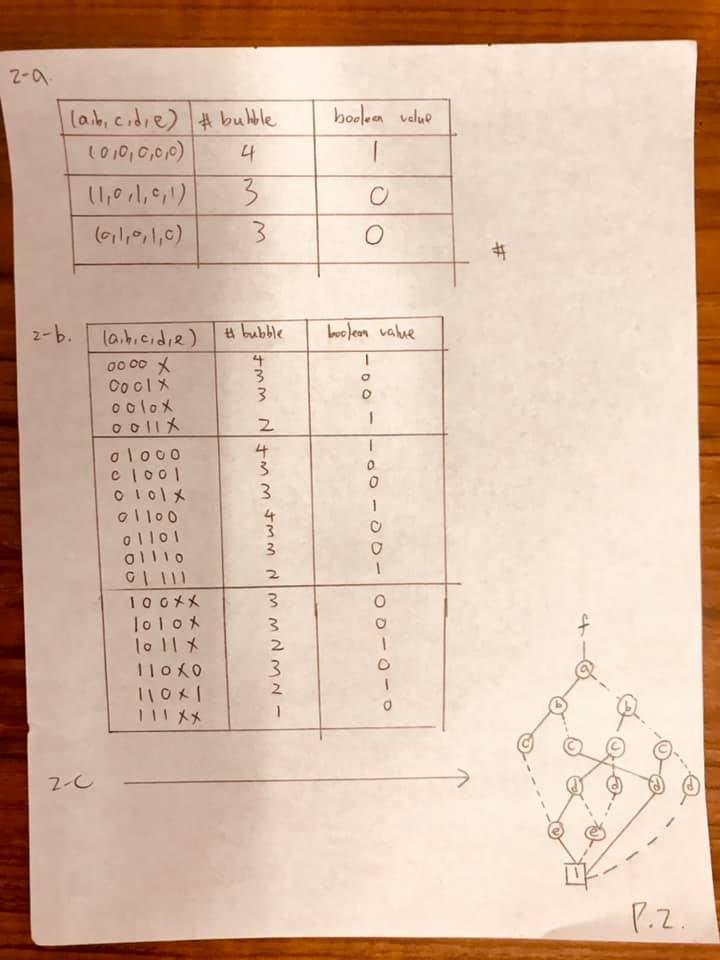 2-a.
(a,b,c,d,e) # bubble boolean value
(0,0,0,0,0) 4 1
(1,0,1,0,1) 3 0
(0,1,0,1,0) 3 0
#
2-b. (a,b,c,d,e) # bubble boolean value
0000X 4 1
0001X 3 0
0010X 3 0
0011X 2 1
01000 4 1
01001 3 0
0101X 3 0
01100 4 1
01101 3 0
01110 3 0
01111 2 1
100XX 3 0
1010X 3 0
1011X 2 1
110X0 3 0
110X1 2 1
111XX 1 0
2-C
f
a
b b
c c c c
d d d d
e e
1
P.2.